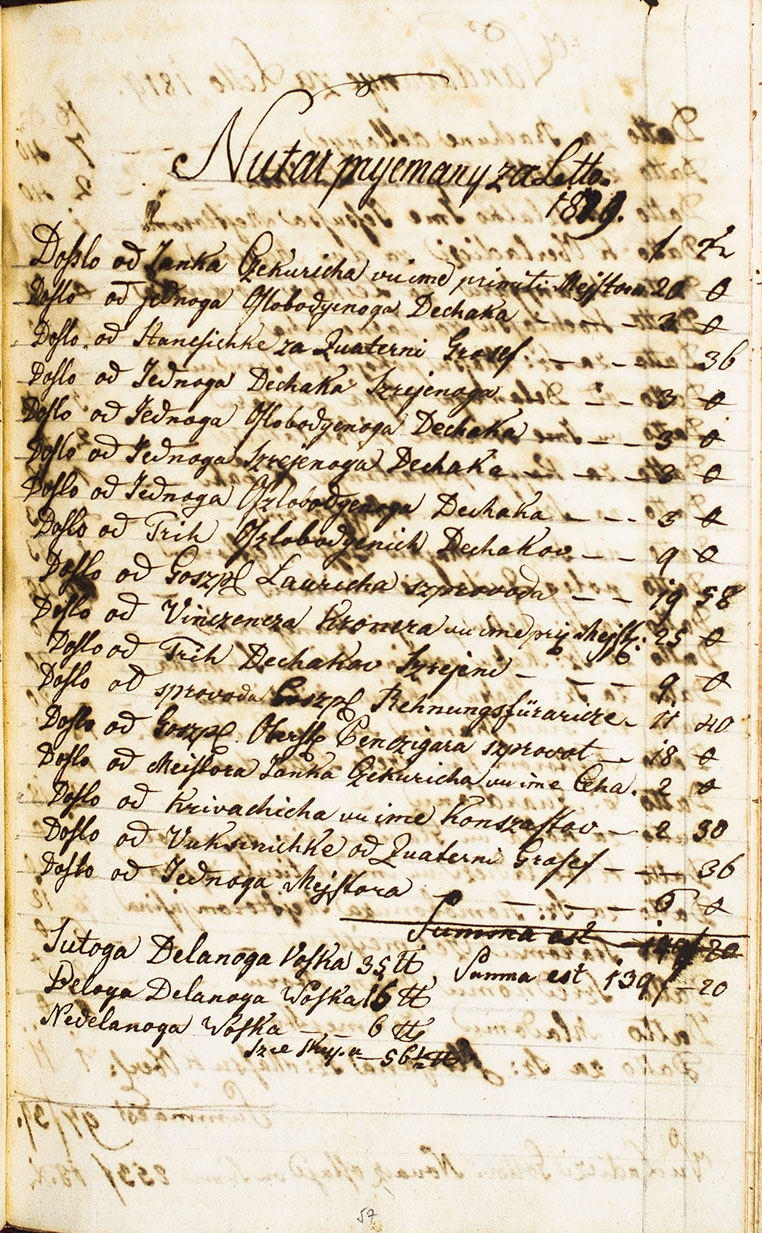 Nutar pryemany za Letto.
1819.
f x
Doſslo od Janka Czekuricha vu ime primiti Mejſtora 20 0
Doſlo od jednoga Oſlobodyenoga Dechaka - - 3 0
Doſlo od Staneſichke za Quaterni Groſef - - - 36
Doſlo od Jednoga Dechaka Szrejenoga - - 3 0
Doſlo od Jednoga Oſlobodyenoga Dechaka - - 3 0
Doſlo od Jednoga Szrejenoga Dechaka - - - 3 0
Doſlo od Jednoga Oſzlobodyenoga Dechaka - - - 3 0
Doſlo od Trih Oſzlobodyenich Dechakov - - 9 0
Doſlo od Goszp. Lauricha szprovoda - - 19 58
Doſlo od Vinczencza Kroncza vu ime prij. Mejſt. 25 0
Doſlo od Trih Dechakov Szrejeni - - - 9 0
Doſlo od sprovoda Goszp. Rehnungsfüraricze - 11 40
Doſlo od Goszp. Oberſt Penczigara szprovot - 18 0
Doſlo od Mejſtora Janka Czekuricha vu ime Ceha. 2 0
Doſlo od Krivachicha vu ime Konszaſtov - 2 30
Doſlo od Vuksinichke od Quaterni Groſef - - 36
Doſlo od Jednoga Mejſtora - - - 6 0
Summa est 139 f 20
Sutoga Delanoga Voſka 35 ℔ Summa est 139 f - 20
Beloga Delanoga Woſka 16 ℔
Nedelanoga Woſka - - 6 ℔
Sze Skup.a - 56 ½ ℔
57